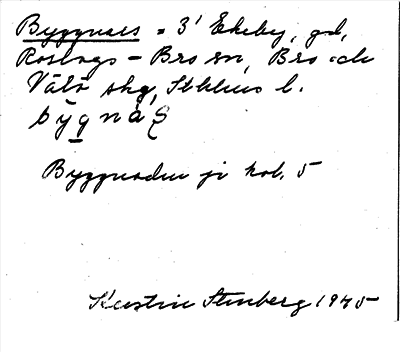 Byggnaes = 3' Ekeby, gd,
Roslags-Bro sn, Bro och
Vätö skg, Sthlms l.
bygnäs
Byggnaden ji kol. 5
Kerstin Stenberg 1945